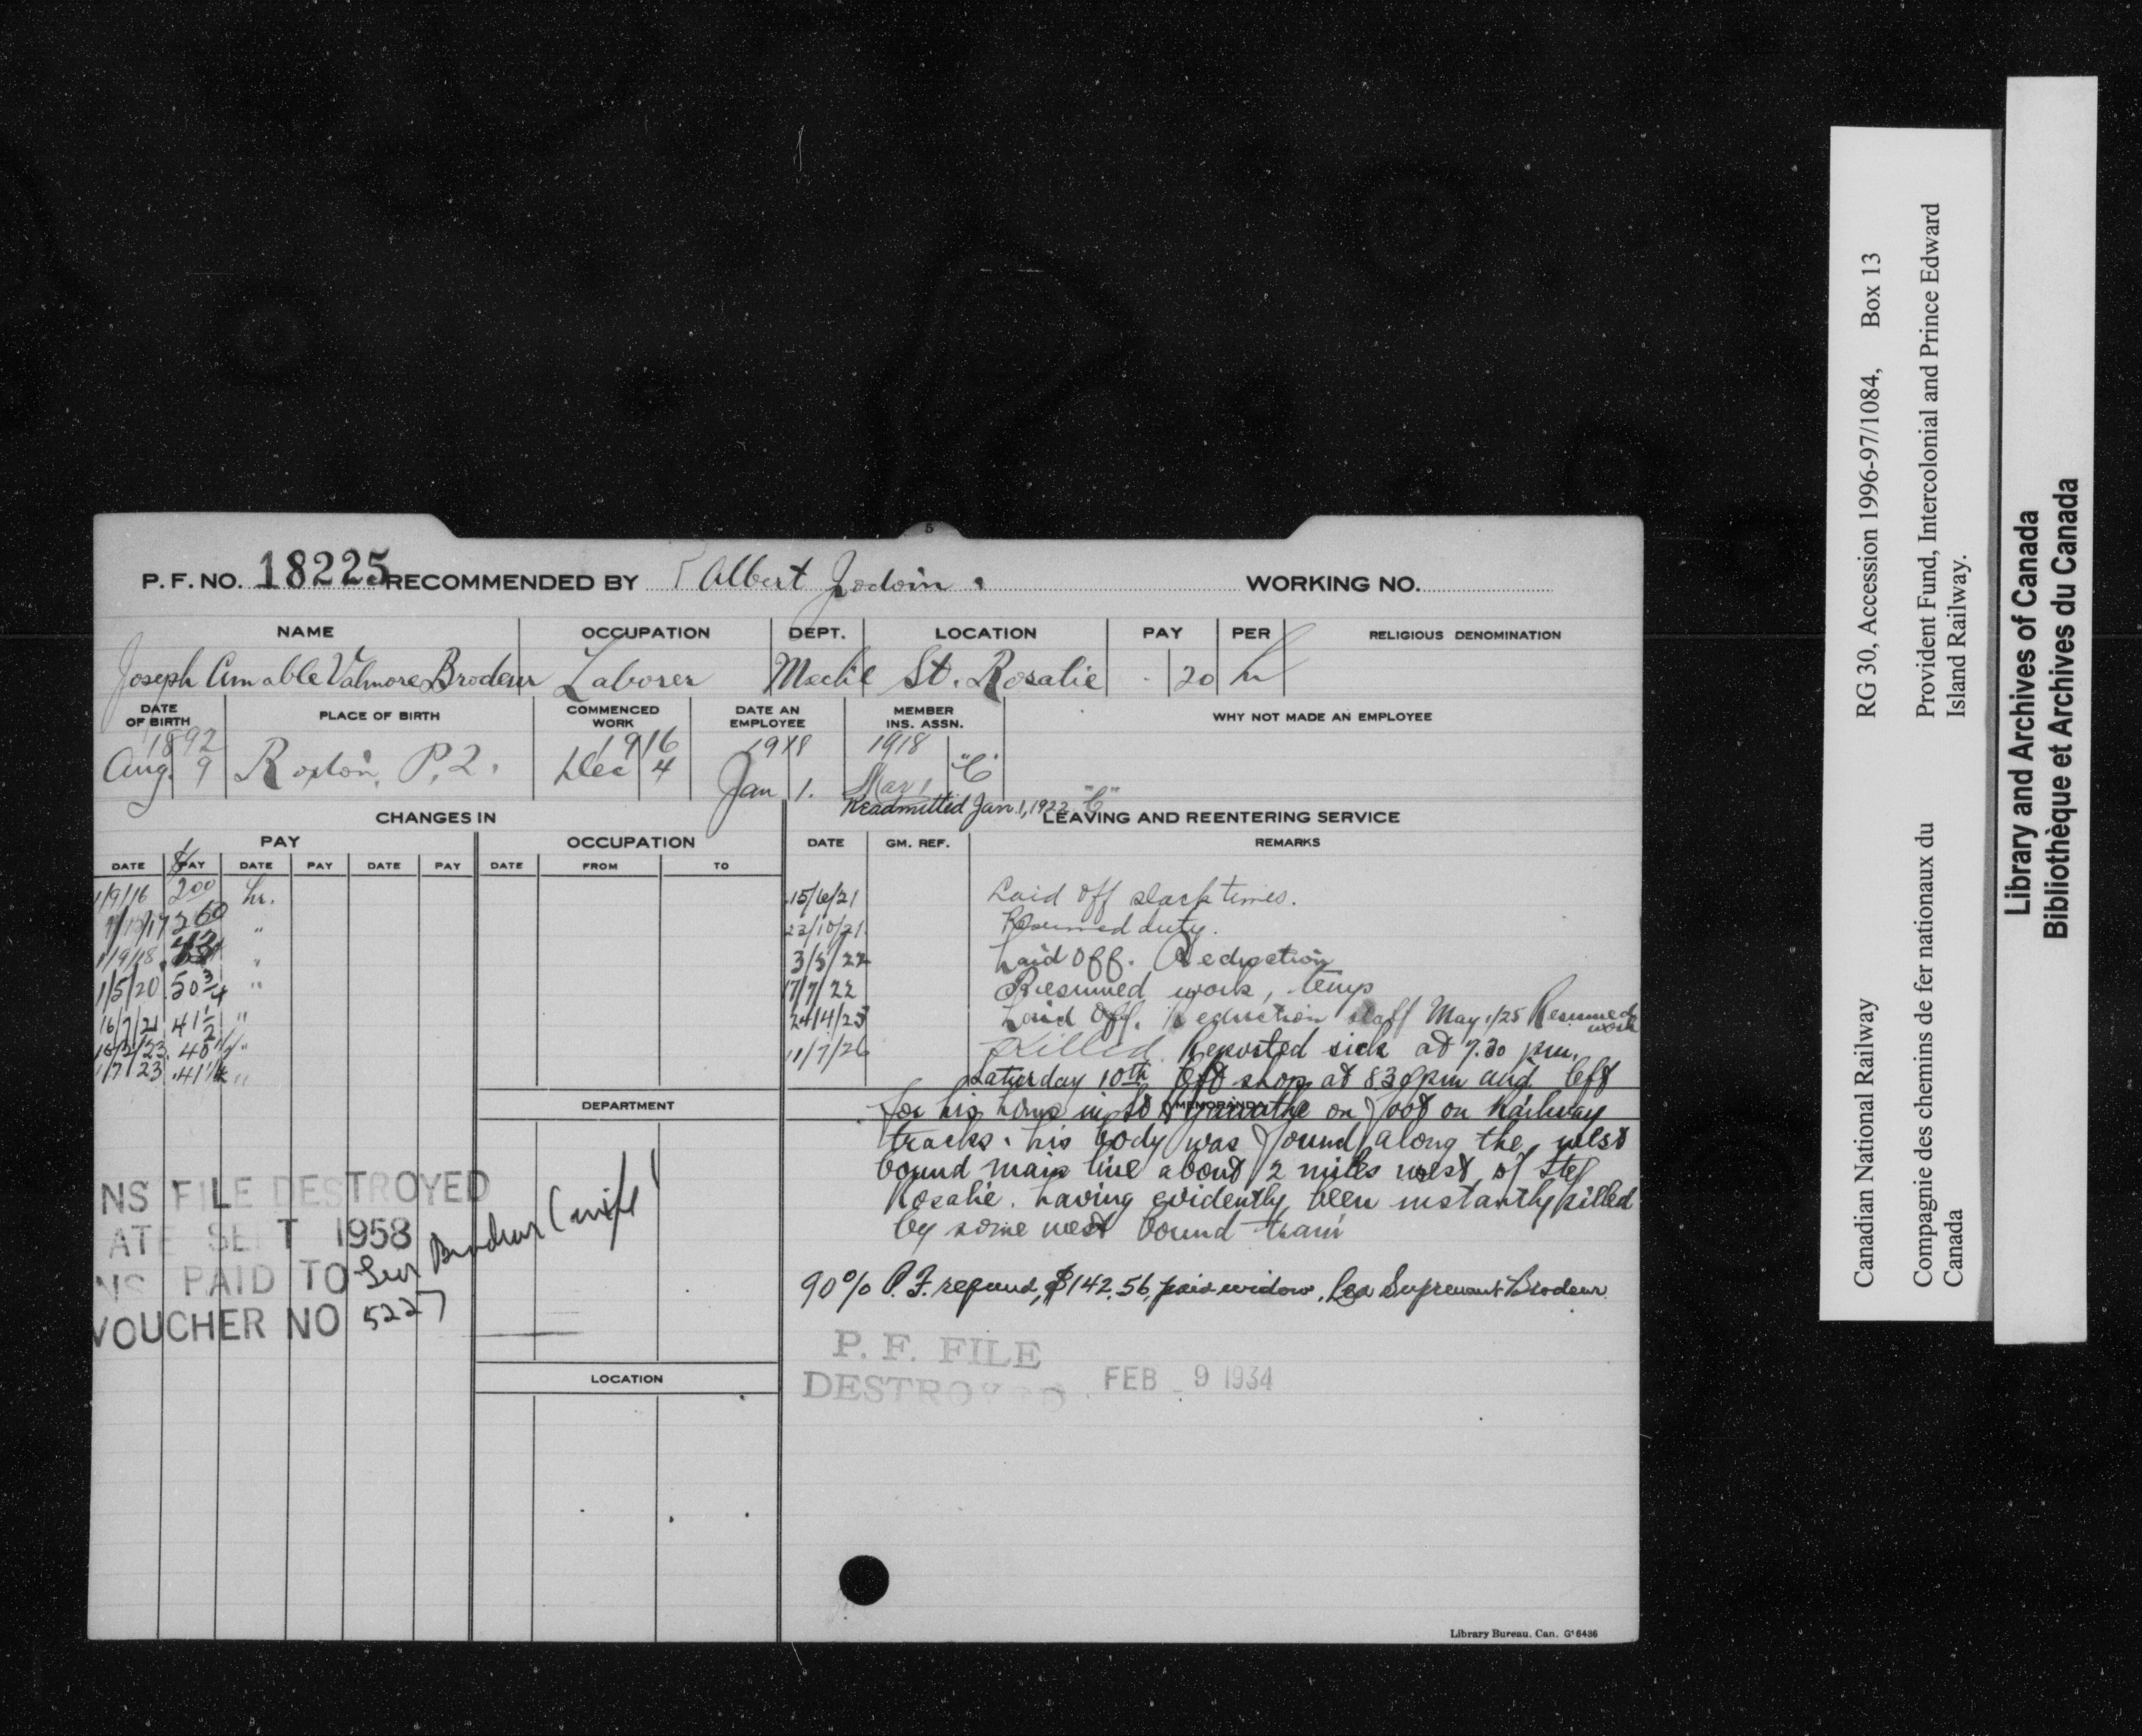 5
P. F. NO. 18225 RECOMMENDED BY Albert Jodoin. WORKING NO.
NAME OCCUPATION DEPT. LOCATION PAY PER RELIGIOUS DENOMINATION
Joseph Amable Valmore Brodeur Laborer Mech'l St. Rosalie 20 hr
DATE OF BIRTH PLACE OF BIRTH COMMENCED WORK DATE AN EMPLOYEE MEMBER INS. ASSN. WHY NOT MADE AN EMPLOYEE
1892 1916 1918 1918
Aug. 9 Roxton, P.Q. Dec 4 Jan 1. Mar 1 "C"
Readmitted Jan. 1, 1922 "C"
CHANGES IN LEAVING AND REENTERING SERVICE
PAY OCCUPATION DATE GM. REF. REMARKS
DATE PAY DATE PAY DATE PAY DATE FROM TO
1/9/16 200 hr. 15/6/21 Laid off slack times.
260 " 22/10/21 Resumed duty.
1/9/18 " 3/5/22 Laid Off. Reduction
1/5/20 .50 3/4 " 17/7/22 Resumed work, temp
16/7/21 41 1/2 " 24/4/25 Laid Off. Reduction staff May 1/25 Resumed work
40 " 11/7/26 Killed. Reported sick at 7.30 pm.
1/7/23 .41 " Saturday 10th left shop at 8.30 pm and left
DEPARTMENT MEMORANDA
for his home in St Hyacinthe on foot on Railway
tracks. his body was found along the west
bound main line about 2 miles west of Ste
Rosalie. having evidently been instantly killed
by some west bound train
90% P. F. refund, $142.56, paid widow, Lea Suprenant Brodeur
NS FILE DESTROYED
ATE SEPT 1958
NS PAID TO Brodeur (wife)
VOUCHER NO 5227
P. F. FILE
DESTROYED FEB 9 1934
LOCATION
Library Bureau. Can. G'6436
Canadian National Railway RG 30, Accession 1996-97/1084, Box 13
Compagnie des chemins de fer nationaux du Canada
Provident Fund, Intercolonial and Prince Edward Island Railway.
Library and Archives of Canada
Bibliothèque et Archives du Canada